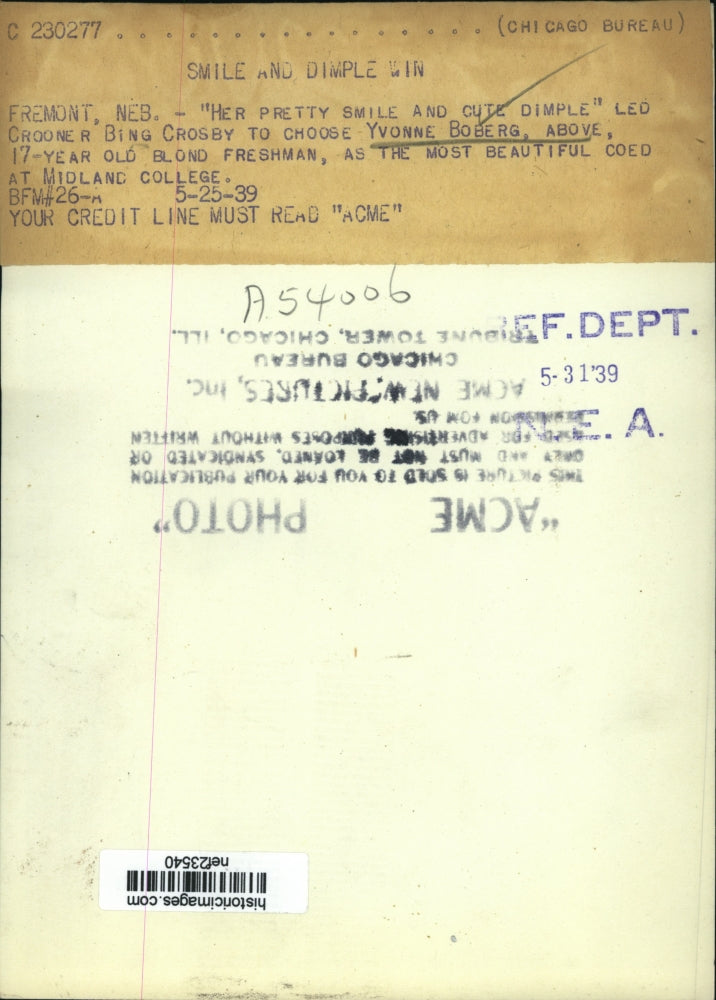 C 230277 . . . . . . . . . . . . . . . . . . (CHICAGO BUREAU)
SMILE AND DIMPLE WIN
FREMONT, NEB. - "HER PRETTY SMILE AND CUTE DIMPLE" LED
CROONER BING CROSBY TO CHOOSE YVONNE BOBERG, ABOVE,
17-YEAR OLD BLOND FRESHMAN, AS THE MOST BEAUTIFUL COED
AT MIDLAND COLLEGE.
BFM#26-A 5-25-39
YOUR CREDIT LINE MUST READ "ACME"
A54006
REF. DEPT.
5-31'39
N. E. A.
"ACME PHOTO"
THIS PICTURE IS SOLD TO YOU FOR YOUR PUBLICATION
ONLY AND MUST NOT BE LOANED, SYNDICATED OR
USED FOR ADVERTISING PURPOSES WITHOUT WRITTEN
PERMISSION FROM US.
ACME NEWSPICTURES, Inc.
CHICAGO BUREAU
TRIBUNE TOWER, CHICAGO, ILL.
historicimages.com
nef23540